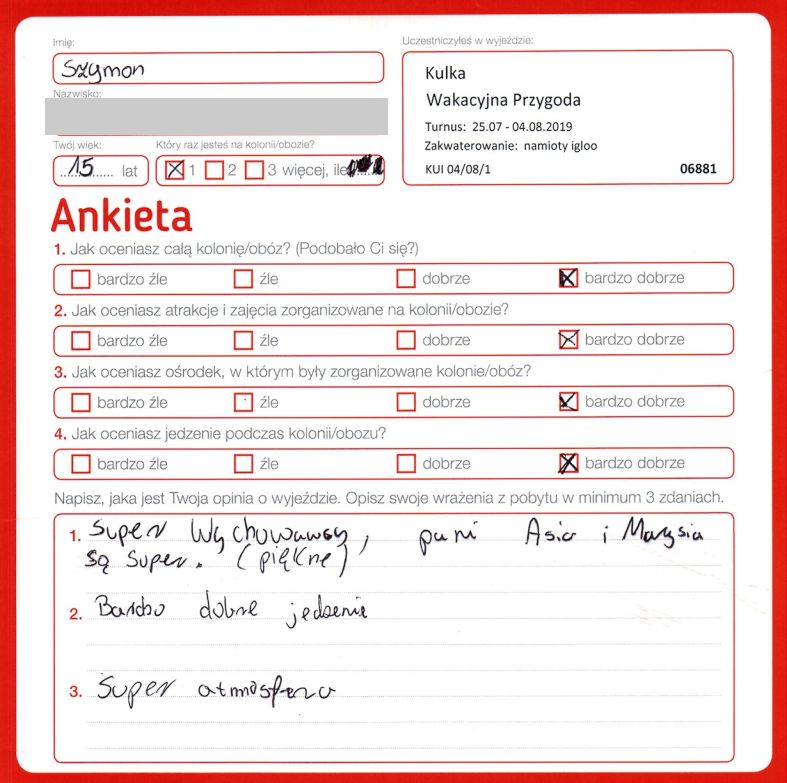 Imię:
Szymon
Nazwisko:
Twój wiek:
15 lat
Który raz jesteś na kolonii/obozie?
1 2 3 więcej, ile
Uczestniczyłeś w wyjeździe:
Kulka
Wakacyjna Przygoda
Turnus: 25.07 - 04.08.2019
Zakwaterowanie: namioty igloo
KUI 04/08/1 06881
Ankieta
1. Jak oceniasz całą kolonię/obóz? (Podobało Ci się?)
bardzo źle źle dobrze bardzo dobrze
2. Jak oceniasz atrakcje i zajęcia zorganizowane na kolonii/obozie?
bardzo źle źle dobrze bardzo dobrze
3. Jak oceniasz ośrodek, w którym były zorganizowane kolonie/obóz?
bardzo źle źle dobrze bardzo dobrze
4. Jak oceniasz jedzenie podczas kolonii/obozu?
bardzo źle źle dobrze bardzo dobrze
Napisz, jaka jest Twoja opinia o wyjeździe. Opisz swoje wrażenia z pobytu w minimum 3 zdaniach.
1. Super Wychowawcy, pani Asia i Marysia
są super. (piękne)
2. Bardzo dobre jedzenie
3. Super atmosfera